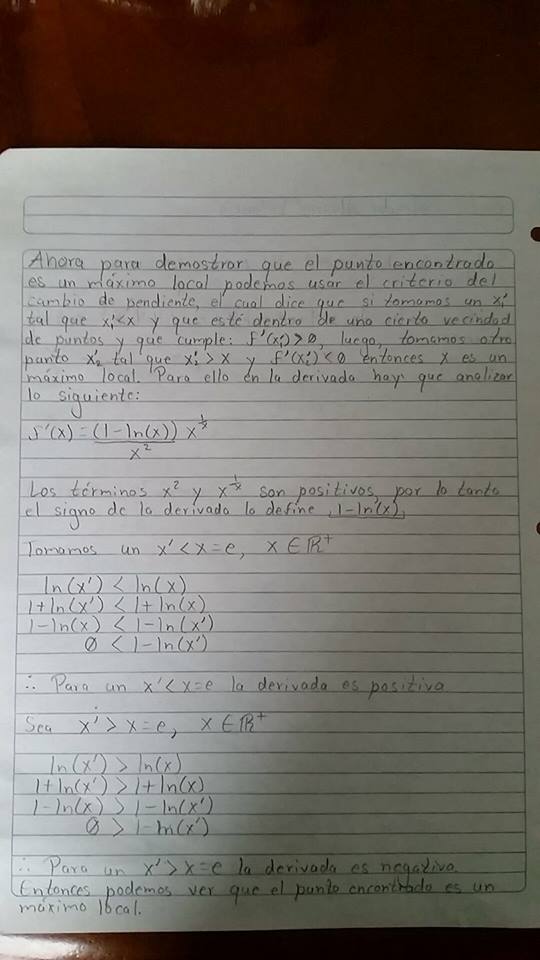 Ahora para demostrar que el punto encontrado
es un máximo local podemos usar el criterio del
cambio de pendiente, el cual dice que si tomamos un x₁'
tal que x₁'<x y que esté dentro de una cierta vecindad
de puntos y que cumple: f'(x₁')>0, luego, tomamos otro
punto x₂' tal que x₂'>x y f'(x₂')<0 entonces x es un
máximo local. Para ello en la derivada hay que analizar
lo siguiente:
f'(x) = (1-ln(x)) x^(1/x) / x²
Los términos x² y x^(1/x) son positivos, por lo tanto
el signo de la derivada lo define 1-ln(x),
Tomamos un x'<x=e, x∈ℝ⁺
ln(x') < ln(x)
1+ln(x') < 1+ln(x)
1-ln(x) < 1-ln(x')
0 < 1-ln(x')
∴ Para un x'<x=e la derivada es positiva
Sea x'>x=e, x∈ℝ⁺
ln(x') > ln(x)
1+ln(x') > 1+ln(x)
1-ln(x) > 1-ln(x')
0 > 1-ln(x')
∴ Para un x'>x=e la derivada es negativa.
Entonces podemos ver que el punto encontrado es un
máximo local.